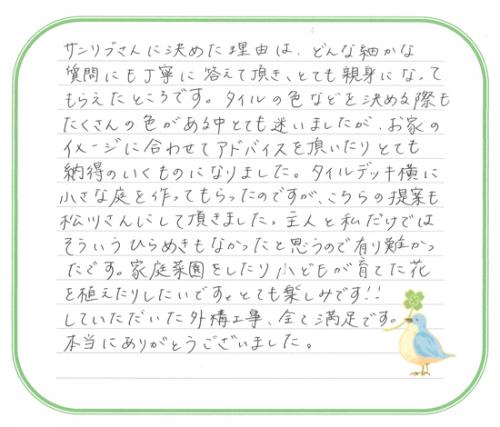 サンリブさんに決めた理由は、どんな細かな
質問にも丁寧に答えて頂き、とても親身になって
もらえたところです。タイルの色などを決める際も
たくさんの色がある中とても迷いましたが、お家の
イメージに合わせてアドバイスを頂いたりとても
納得のいくものになりました。タイルデッキ横に
小さな庭を作ってもらったのですが、こちらの提案も
松川さんにして頂きました。主人と私だけでは
そういうひらめきもなかったと思うので有り難かっ
たです。家庭菜園をしたり子どもが育てた花
を植えたりしたいです。とても楽しみです!!
していただいた外構工事、全て満足です。
本当にありがとうございました。